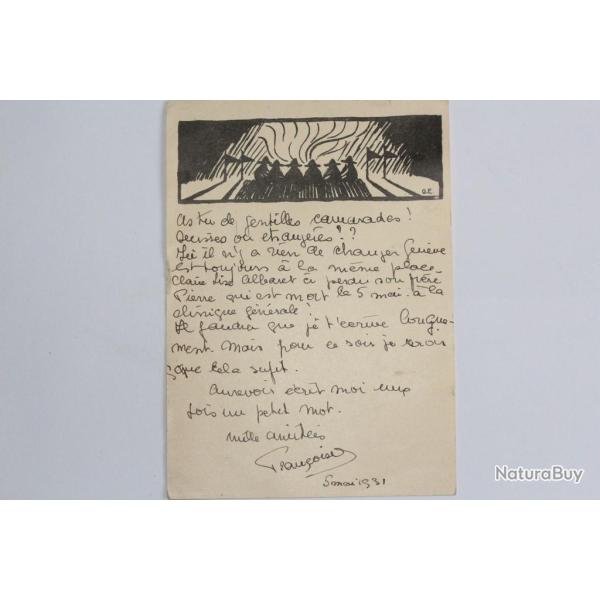 O.E.
as tu de gentilles camarades!
Suisses ou étrangères!??
Ici il n'y a rien de changer Genève
est toujours à la même place.
Claire Lise Albaret a perdu son frère
Pierre qui est mort le 5 mai. à la
clinique générale!
Il faudra que je t'écrive longue-
ment. Mais pour ce soir je crois
que cela sufit.
Aurevoir écrit moi une
fois un petit mot.
mille amitiés
Françoise
5 mai 1931
NaturaBuy